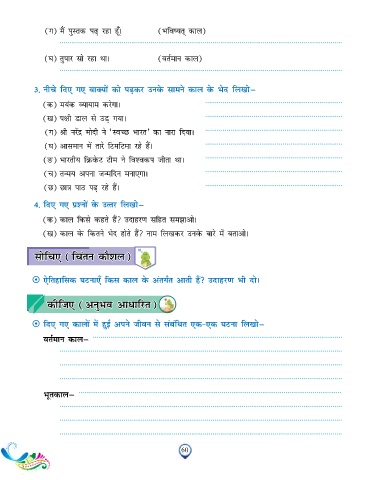 (ग) मैं पुस्तक पढ़ रहा हूँ। (भविष्यत् काल)
(घ) तुषार सो रहा था। (वर्तमान काल)
3. नीचे दिए गए वाक्यों को पढ़कर उनके सामने काल के भेद लिखो–
(क) मयंक व्यायाम करेगा।
(ख) पक्षी डाल से उड़ गया।
(ग) श्री नरेंद्र मोदी ने 'स्वच्छ भारत' का नारा दिया।
(घ) आसमान में तारे टिमटिमा रहे हैं।
(ङ) भारतीय क्रिकेट टीम ने विश्वकप जीता था।
(च) तन्मय अपना जन्मदिन मनाएगा।
(छ) छात्र पाठ पढ़ रहे हैं।
4. दिए गए प्रश्नों के उत्तर लिखो–
(क) काल किसे कहते हैं? उदाहरण सहित समझाओ।
(ख) काल के कितने भेद होते हैं? नाम लिखकर उनके बारे में बताओ।
सोचिए (चिंतन कौशल)
ऐतिहासिक घटनाएँ किस काल के अंतर्गत आती हैं? उदाहरण भी दो।
कीजिए (अनुभव आधारित)
दिए गए कालों में हुई अपने जीवन से संबंधित एक-एक घटना लिखो–
वर्तमान काल–
भूतकाल–
60